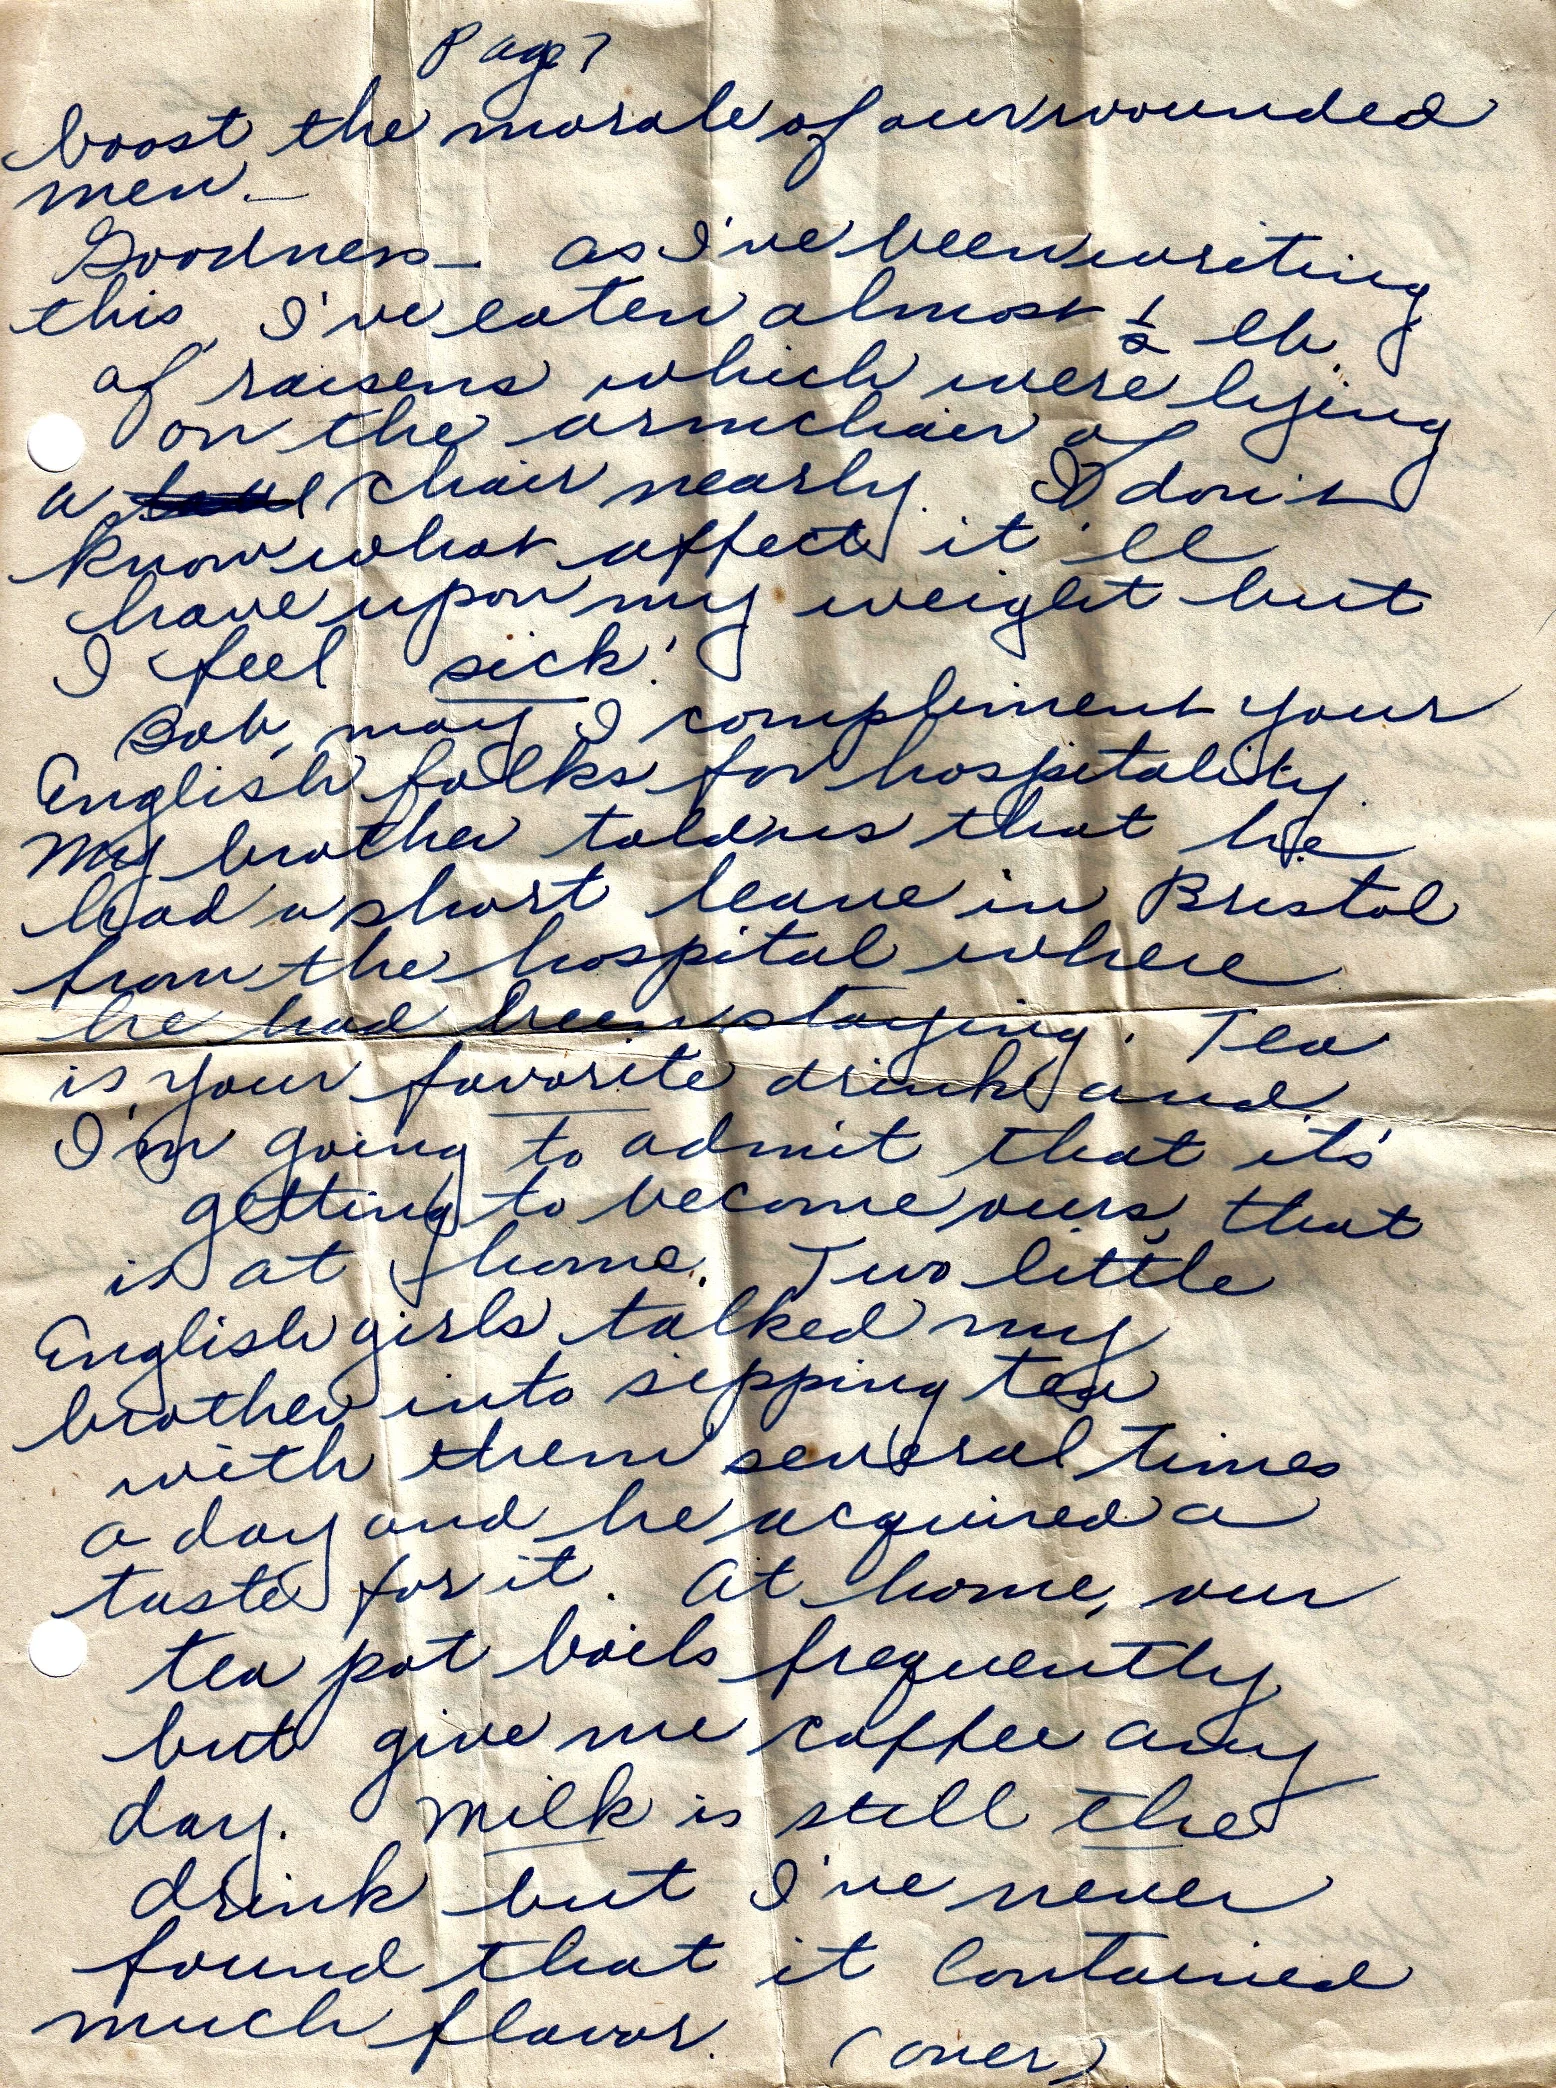 Page 7
boost the morale of our wounded
men. —
Goodness — as I've been writing
this, I've eaten almost 1/2 lb.
of raisens which were lying
on the armchair of
a chair nearly. I don't
know what affect it'll
have upon my weight but
I feel sick!
Bob, may I compliment your
English folks for hospitality.
My brother told us that he
had a short leave in Bristol
from the hospital where
he had been staying. Tea
is your favorite drink and
I'm going to admit that it's
getting to become ours, that
is at home. Two little
English girls talked my
brother into sipping tea
with them several times
a day and he acquired a
taste for it. At home, our
tea pot boils frequently
but give me coffee any
day. Milk is still the
drink but I've never
found that it contained
much flavor. (over)